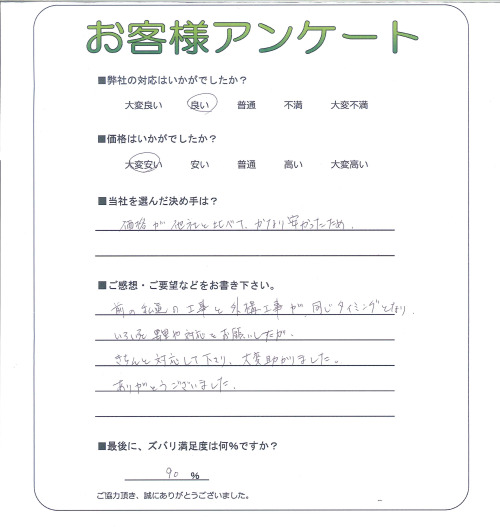 お客様アンケート
■弊社の対応はいかがでしたか？
大変良い 良い 普通 不満 大変不満
■価格はいかがでしたか？
大変安い 安い 普通 高い 大変高い
■当社を選んだ決め手は？
価格が他社と比べて、かなり安かったため.
■ご感想・ご要望などをお書き下さい。
前の私道の工事と外構工事が、同じタイミングとなり
いろいろ や対応をお願いしたが.
きちんと対応して下さり、大変助かりました。
ありがとうございました.
■最後に、ズバリ満足度は何％ですか？
90 %
ご協力頂き、誠にありがとうございました。